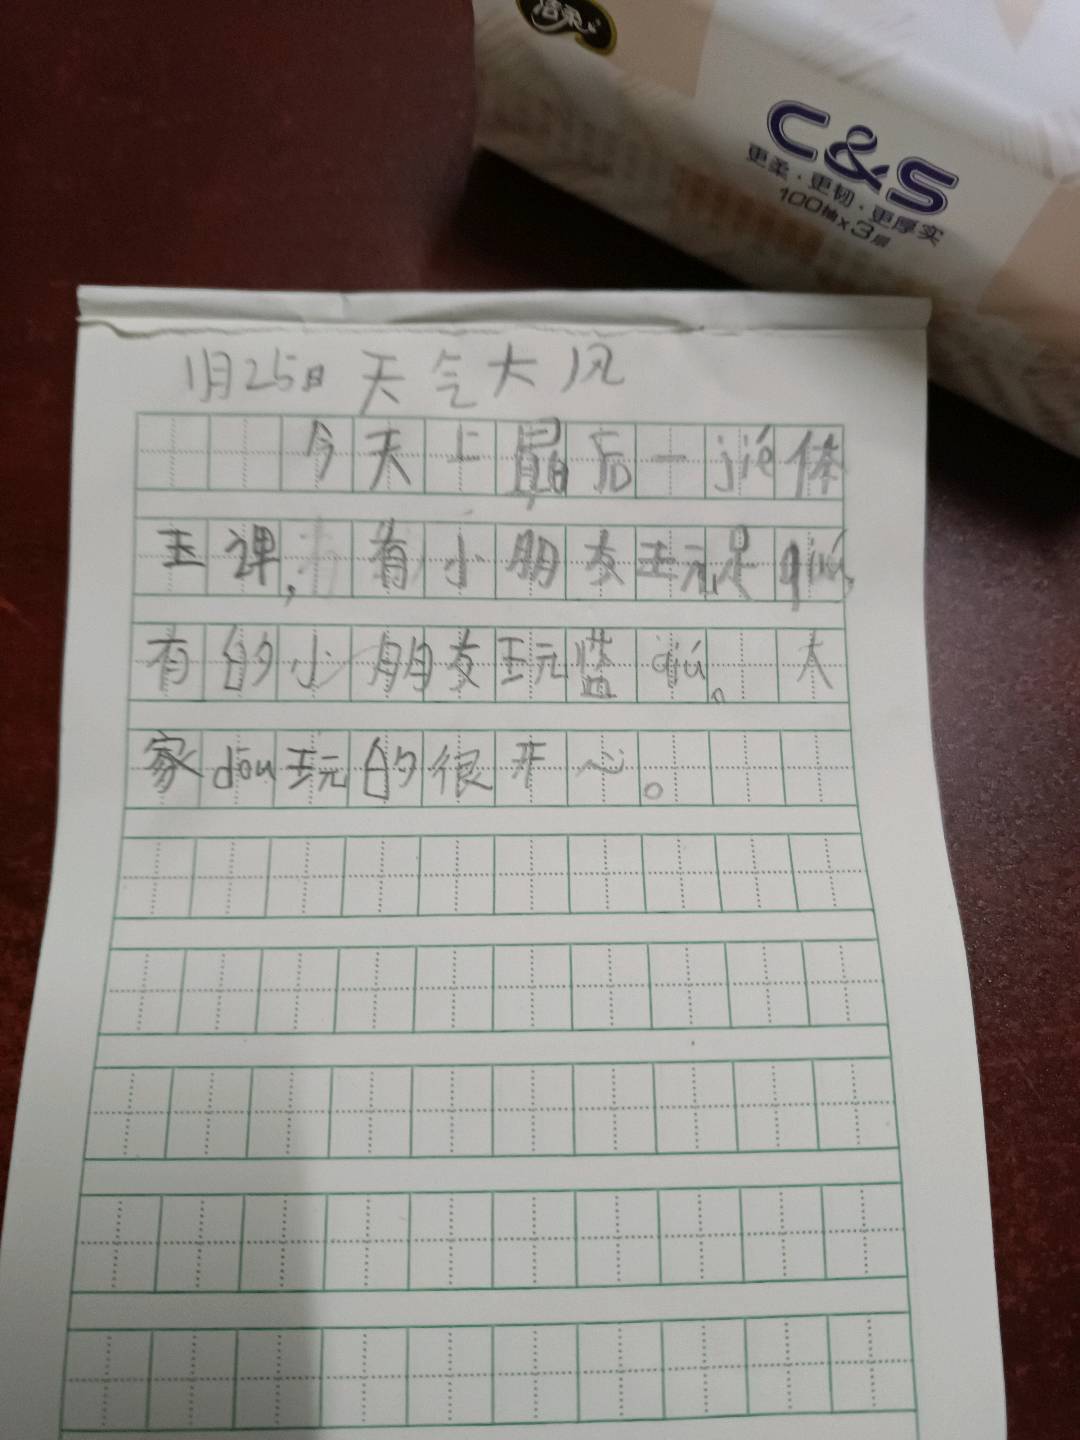 洁柔
C&S
更柔·更韧·更厚实
100抽x3层
1月25日 天气大风
今天上最后一jié体
玉课,有小朋友玩足qiú,
有的小朋友玩蓝qiú。大
家dōu玩的很开心。